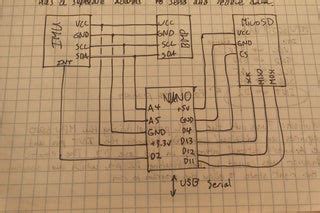 has a separate address to send and receive data.
IMU
VCC
GND
SCL
SDA
INT
VCC
GND
SCL
SDA
BMP
MicroSD
VCC
GND
CS
SCK
MISO
MOSI
NANO
A4
A5
GND
+3.3V
D2
+5V
GND
D4
D13
D12
D11
USB Serial